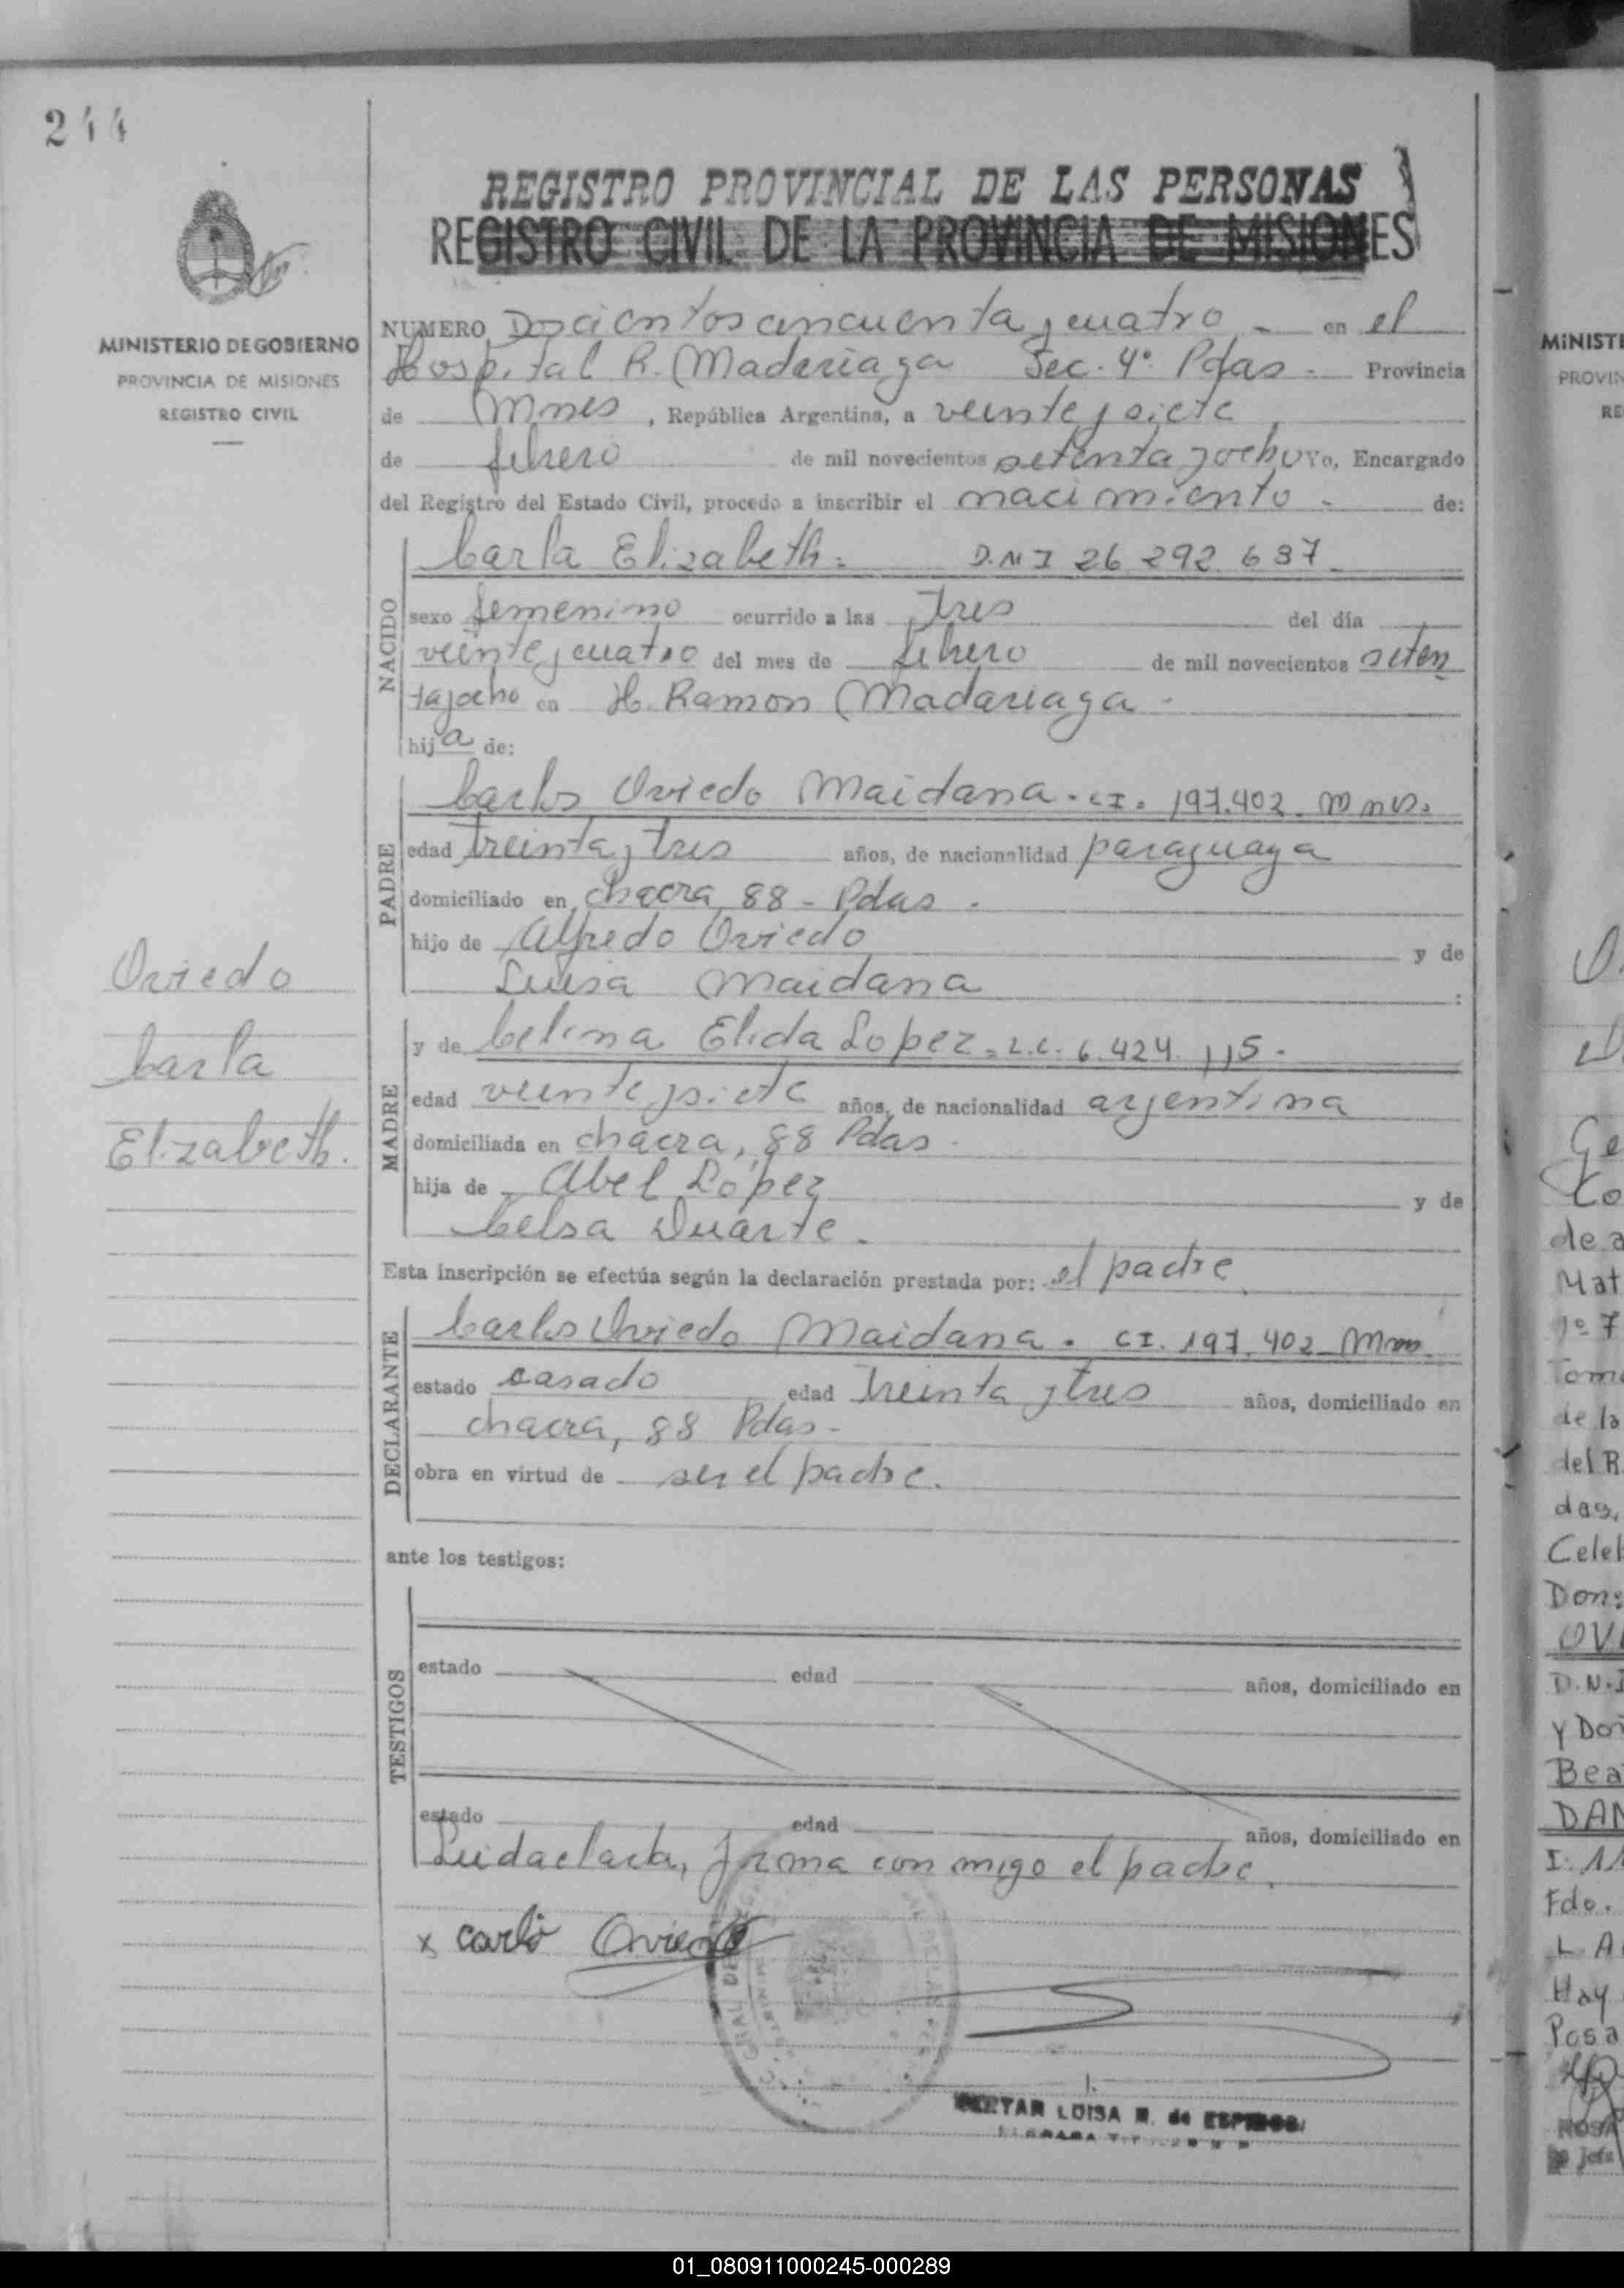 244
REGISTRO PROVINCIAL DE LAS PERSONAS
REGISTRO CIVIL DE LA PROVINCIA DE MISIONES
MINISTERIO DE GOBIERNO
PROVINCIA DE MISIONES
REGISTRO CIVIL
NUMERO Doscientos cincuenta y cuatro - en el
Hospital R. Madariaga Sec. 4º Pdas - Provincia
de Mnes, República Argentina, a veinte y siete
de febrero de mil novecientos setenta y ocho Yo, Encargado
del Registro del Estado Civil, procedo a inscribir el nacimiento - de:
NACIDO
Carla Elizabeth. D.N.I 26.292.637.
sexo femenino ocurrido a las tres del día
veinte y cuatro del mes de febrero de mil novecientos seten
ta y ocho en H. Ramon Madariaga -
hija de:
PADRE
Carlos Oviedo Maidana. CI. 197.402. Mnes.
edad treinta y tres años, de nacionalidad paraguaya
domiciliado en chacra 88 - Pdas.
hijo de Alfredo Oviedo y de
Luisa Maidana :
MADRE
y de Celina Elida Lopez. L.C. 6.424.115.
edad veinte y siete años, de nacionalidad argentina
domiciliada en chacra, 88 Pdas.
hija de Abel Lopez y de
Celsa Duarte.
Oviedo
Carla
Elizabeth.
Esta inscripción se efectúa según la declaración prestada por: el padre
DECLARANTE
Carlos Oviedo Maidana. CI. 197.402 Mnes
estado casado edad treinta y tres años, domiciliado en
chacra, 88 Pdas-
obra en virtud de ser el padre.
ante los testigos:
TESTIGOS
estado edad años, domiciliado en
estado edad años, domiciliado en
Leida el acta, firma con migo el padre.
x Carlo Oviedo
LUISA M. de
01_080911000245-000289